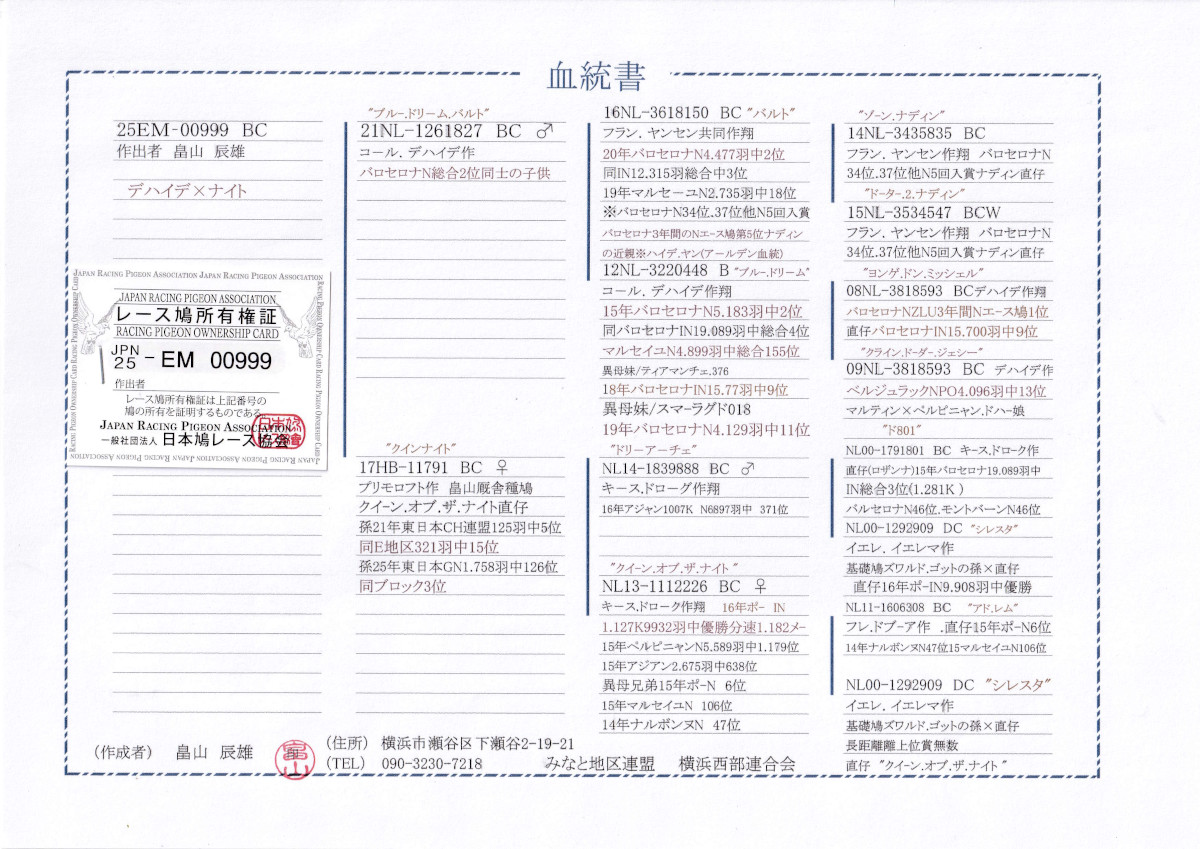 血統書
25EM-00999 BC
作出者 畠山 辰雄
デハイデ×ナイト
JAPAN RACING PIGEON ASSOCIATION JAPAN RACING PIGEON ASSOCIATION
JAPAN RACING PIGEON ASSOCIATION
レース鳩所有権証
RACING PIGEON OWNERSHIP CARD
JPN
25 - EM 00999
作出者
レース鳩所有権証は上記番号の
鳩の所有を証明するものである
JAPAN RACING PIGEON ASSOCIATION
一般社団法人 日本鳩レース協会
"ブルー.ドリーム.バルト"
21NL-1261827 BC ♂
コール. デハイデ作
バロセロナN総合2位同士の子供
"クインナイト"
17HB-11791 BC ♀
プリモロフト作 畠山厩舎種鳩
クイーン.オブ.ザ.ナイト直仔
孫21年東日本CH連盟125羽中5位
同E地区321羽中15位
孫25年東日本GN1.758羽中126位
同ブロック3位
16NL-3618150 BC "バルト"
フラン. ヤンセン共同作翔
20年バロセロナN4.477羽中2位
同IN12.315羽総合中3位
19年マルセーユN2.735羽中18位
※バロセロナN34位.37位他N5回入賞
バロセロナ3年間のNエース鳩第5位ナディン
の近親※ハイデ.ヤン(アールデン血統)
12NL-3220448 B "ブルー.ドリーム"
コール. デハイデ作翔
15年バロセロナN5.183羽中2位
同バロセロナIN19.089羽中総合4位
マルセイユN4.899羽中総合155位
異母妹/ティアマンチェ.376
18年バロセロナIN15.77羽中9位
異母妹/スマーラグド018
19年バロセロナN4.129羽中11位
"ドリーアーチェ"
NL14-1839888 BC ♂
キース.ドローグ作翔
16年アジャン1007K N6897羽中 371位
"クイーン.オブ.ザ.ナイト"
NL13-1112226 BC ♀
キース.ドローク作翔 16年ポー IN
1.127K9932羽中優勝分速1.182メー
15年ペルピニャンN5.589羽中1.179位
15年アジアン2.675羽中638位
異母兄弟15年ポーN 6位
15年マルセイユN 106位
14年ナルボンヌN 47位
"ゾーン.ナディン"
14NL-3435835 BC
フラン. ヤンセン作翔 バロセロナN
34位.37位他N5回入賞ナディン直仔
"ドーター.2.ナディン"
15NL-3534547 BCW
フラン. ヤンセン作翔 バロセロナN
34位.37位他N5回入賞ナディン直仔
"ヨンゲ.ドン.ミッシェル"
08NL-3818593 BCデハイデ作翔
バロセロナNZLU3年間Nエース鳩1位
直仔バロセロナIN15.700羽中9位
"クライン.ドーダー.ジェシー"
09NL-3818593 BC デハイデ作
ベルジュラックNPO4.096羽中13位
マルティン×ペルピニャン.ドハー娘
"ド801"
NL00-1791801 BC キース.ドローク作
直仔(ロザンナ)15年バロセロナ19.089羽中
IN総合3位(1.281K )
バルセロナN46位.モントバーンN46位
NL00-1292909 DC "シレスタ"
イエレ. イエレマ作
基礎鳩ズワルド.ゴットの孫×直仔
直仔16年ポーIN9.908羽中優勝
NL11-1606308 BC "アド.レム"
フレ.ドブーア作 .直仔15年ポーN6位
14年ナルボンヌN47位15マルセイユN106位
NL00-1292909 DC "シレスタ"
イエレ. イエレマ作
基礎鳩ズワルド.ゴットの孫×直仔
長距離離上位賞無数
直仔 "クイーン.オブ.ザ.ナイト"
(作成者) 畠山 辰雄
畠山
(住所) 横浜市瀬谷区下瀬谷2-19-21
(TEL) 090-3230-7218
みなと地区連盟 横浜西部連合会